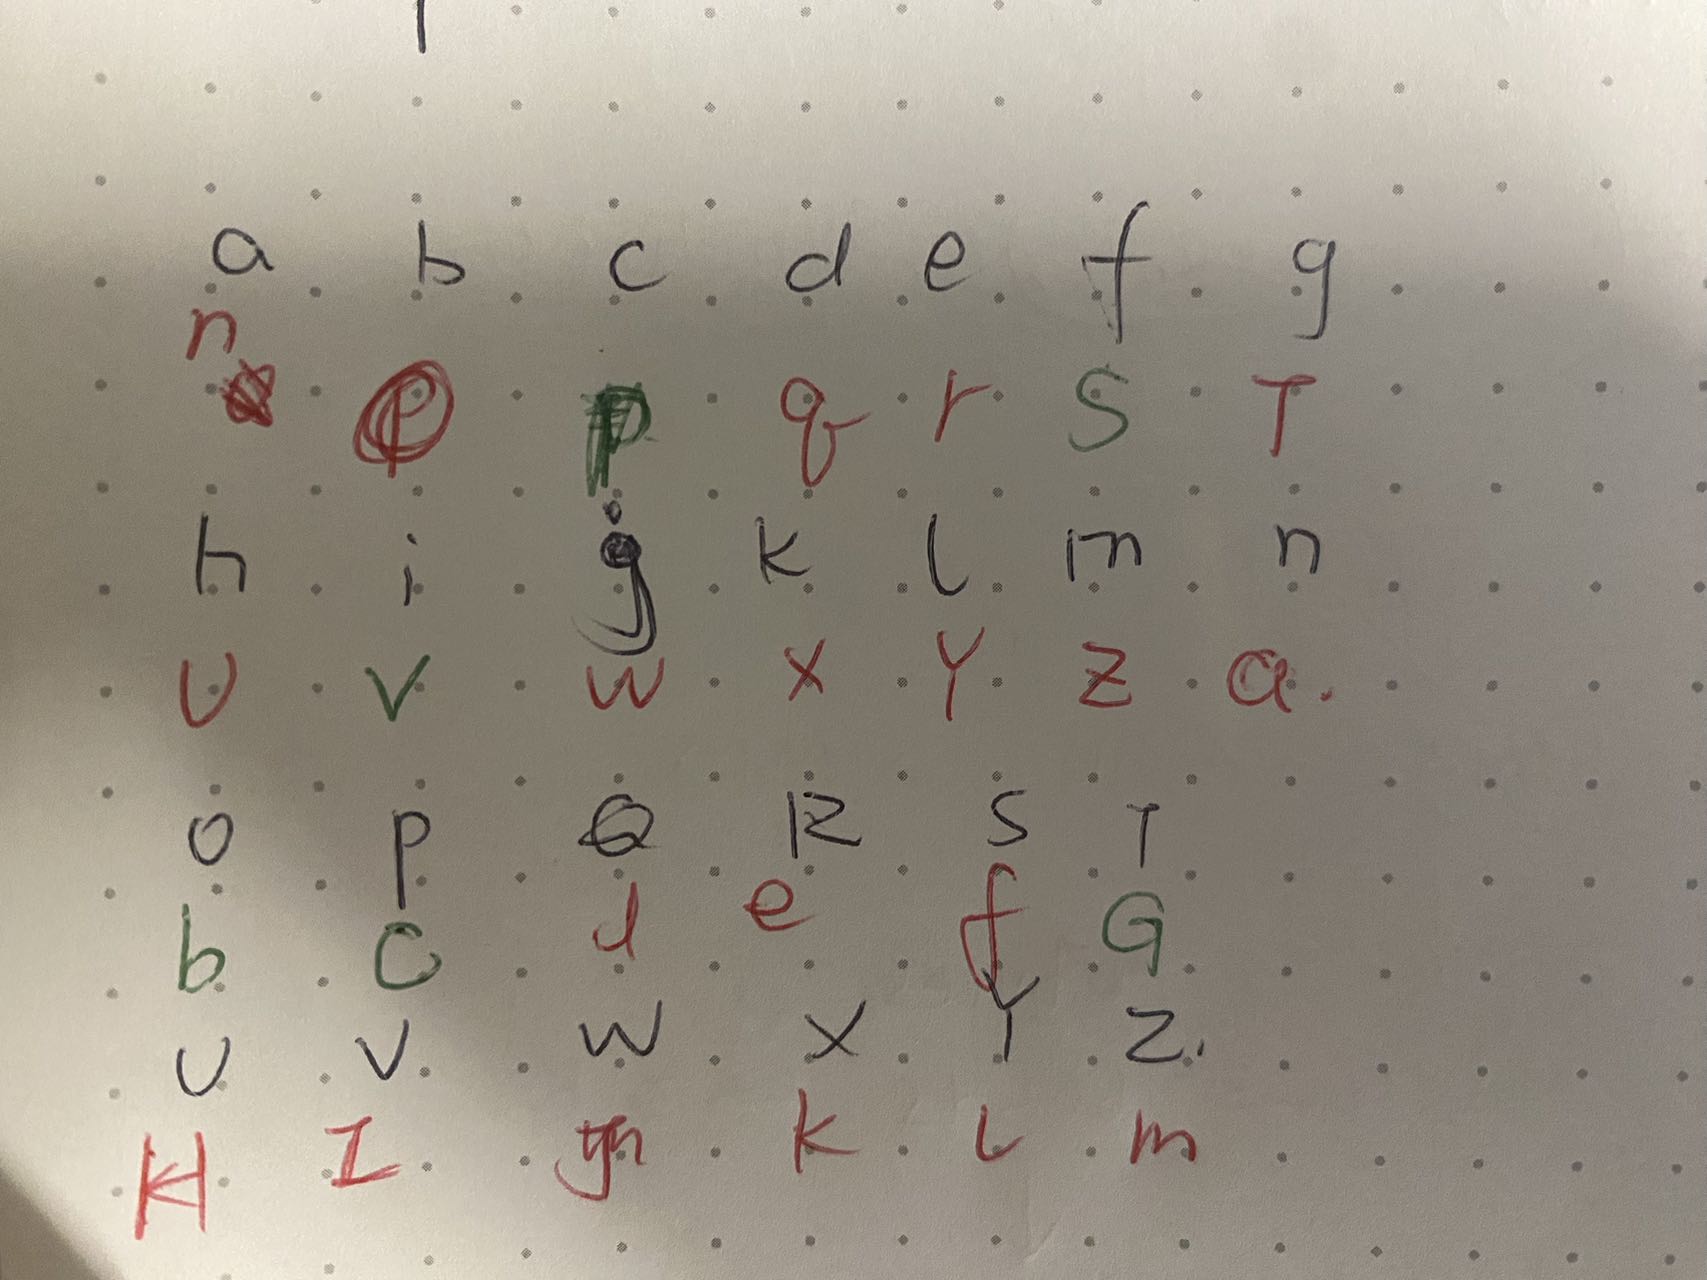 a b c d e f g
n p p q r S T
h i j k l m n
U V W X Y Z a.
o p Q R S T
b C d e f G
U V W X Y Z.
H I k l m